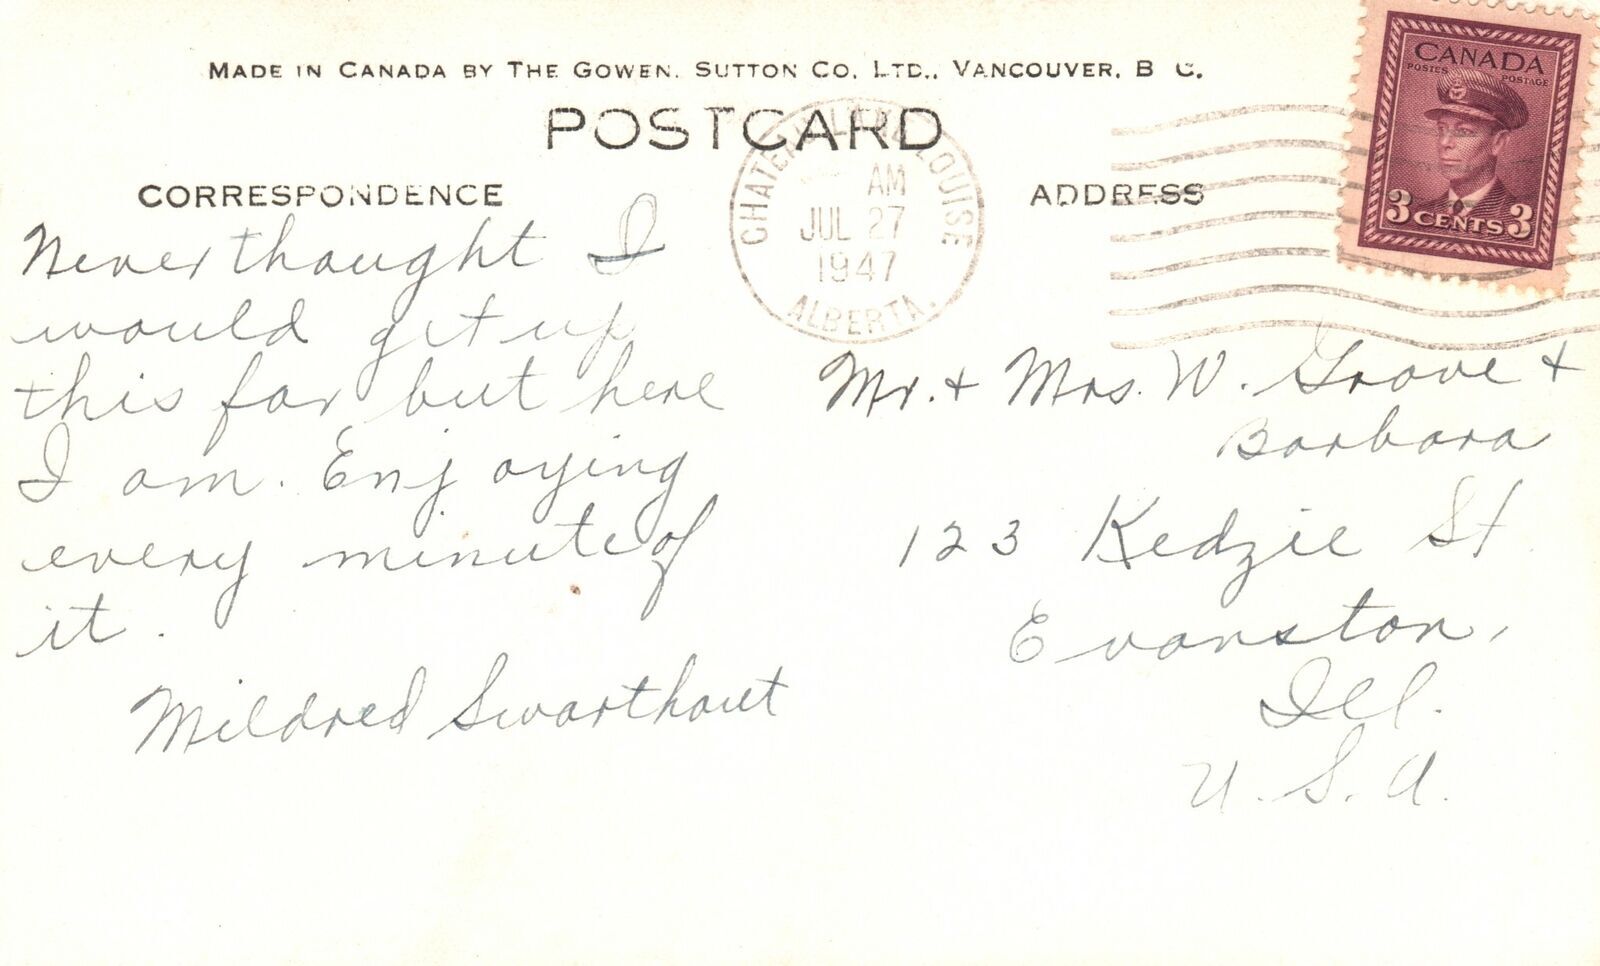 MADE IN CANADA BY THE GOWEN, SUTTON CO. LTD., VANCOUVER, B C.
POSTCARD
CORRESPONDENCE
Never thought I
would get up
this far but here
I am. Enjoying
every minute of
it.
Mildred Swarthout
CHATEAU LAKE LOUISE
AM
JUL 27
1947
ALBERTA.
CANADA
POSTES POSTAGE
3 CENTS 3
ADDRESS
Mr. + Mrs. W. Grove +
Barbara
123 Kedzie St.
Evanston,
Ill.
U.S.A.